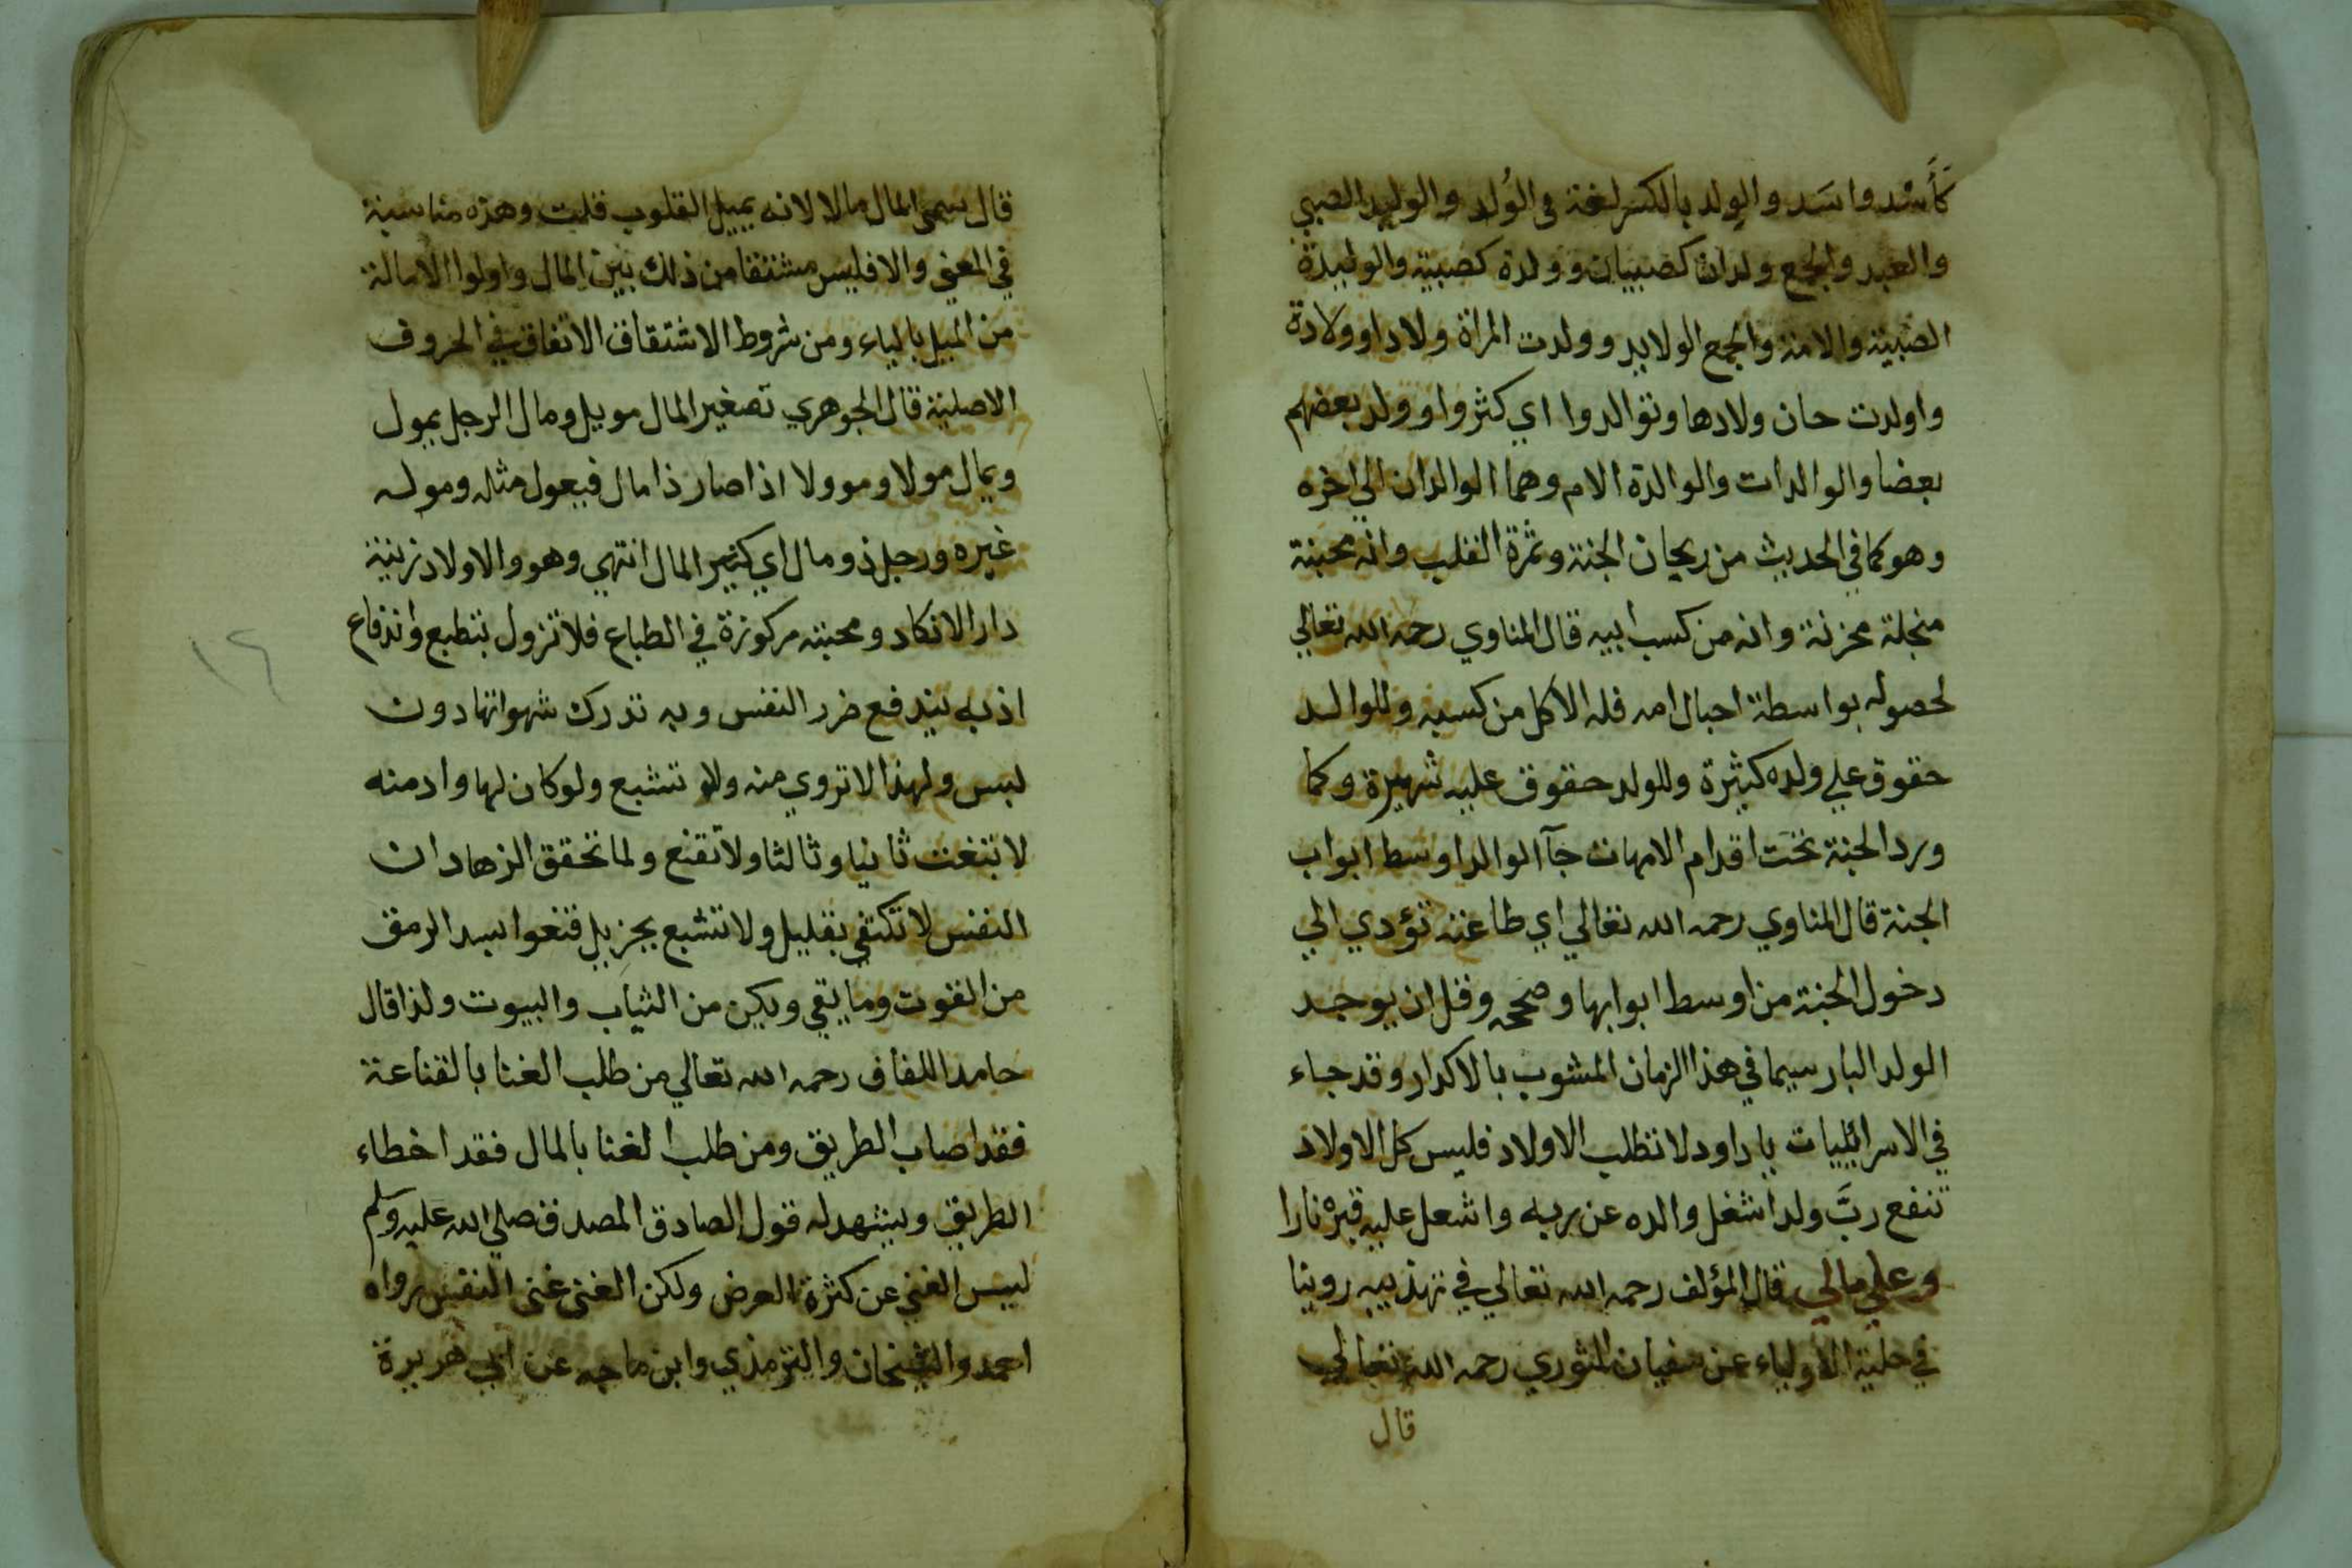 كَأُسْد واسَد والوِلد بالكسر لغة في الوُلد والوليد الصبي
والعبد والجمع ولدان كصبيان وولدة كصبية والوليدة
الصبية والامة والجمع الولايد وولدت المراة ولادا وولادة
واولدت حان ولادها وتوالدوا اي كثروا وولد بعضهم
بعضا والوالدات والوالدة الام وهما الوالدان الي اخره
وهو كما في الحديث من ريحان الجنة وثمرة القلب وانه مجبنة
منجلة محزنة وانه من كسب ابيه قال المناوي رحمه الله تعالي
لحصوله بواسطة احبال امه فله الاكل من كسبه وللوالد
حقوق علي ولده كثيرة وللولد حقوق عليه شهيرة وكما
ورد الجنة تحت اقدام الامهات جآ الوالد اوسط ابواب
الجنة قال المناوي رحمه الله تعالي اي طاعته تؤدي الي
دخول الجنة من اوسط ابوابها وصححه وقل ان يوجد
الولد البار سيما في هذا الزمان المشوب بالاكدار وقد جاء
في الاسرائيليات ياداود لا تطلب الاولاد فليس كل الاولاد
تنفع ربَّ ولد اشغل والده عن ربه واشعل عليه قبره نارا
وعلي مالي قال المؤلف رحمه الله تعالي في تهذيبه روينا
في حلية الاولياء عن سفيان الثوري رحمه الله تعالي
قال
قال سمي المال مالا لانه يميل القلوب قلت وهذه مناسبة
في المعني والا فليس مشتقا من ذلك بين المال واولوا الامالة
من الميل بالياء ومن شروط الاشتقاق الاتفاق في الحروف
الاصلية قال الجوهري تصغير المال مويل ومال الرجل يمول
ويمال مولا وموولا اذا صار ذا مال فيعول مثله وموله
غيره ورجل ذو مال اي كثير المال انتهي وهو والاولاد زينة
دار الانكاد ومحبته مركوزة في الطباع فلا تزول بتطبع واندفاع
اذ به يندفع ضرر النفس وبه تدرك شهواتها دون
لبس ولهذا لا تروي منه ولا تشبع ولو كان لها وادمنه
لابتغت ثانيا وثالثا ولا تقنع ولما تحقق الزهاد ان
النفس لا تكتفي بقليل ولا تشبع بجزيل قنعوا بسد الرمق
من القوت وما يقي ويكن من الثياب والبيوت ولذا قال
حامد اللفاف رحمه الله تعالي من طلب الغنا بالقناعة
فقد اصاب الطريق ومن طلب الغنا بالمال فقد اخطاء
الطريق ويشهد له قول الصادق المصدق صلي الله عليه وسلم
ليس الغني عن كثرة العرض ولكن الغني غني النفس رواه
احمد والشيخان والترمذي وابن ماجه عن ابي هريرة
١٦